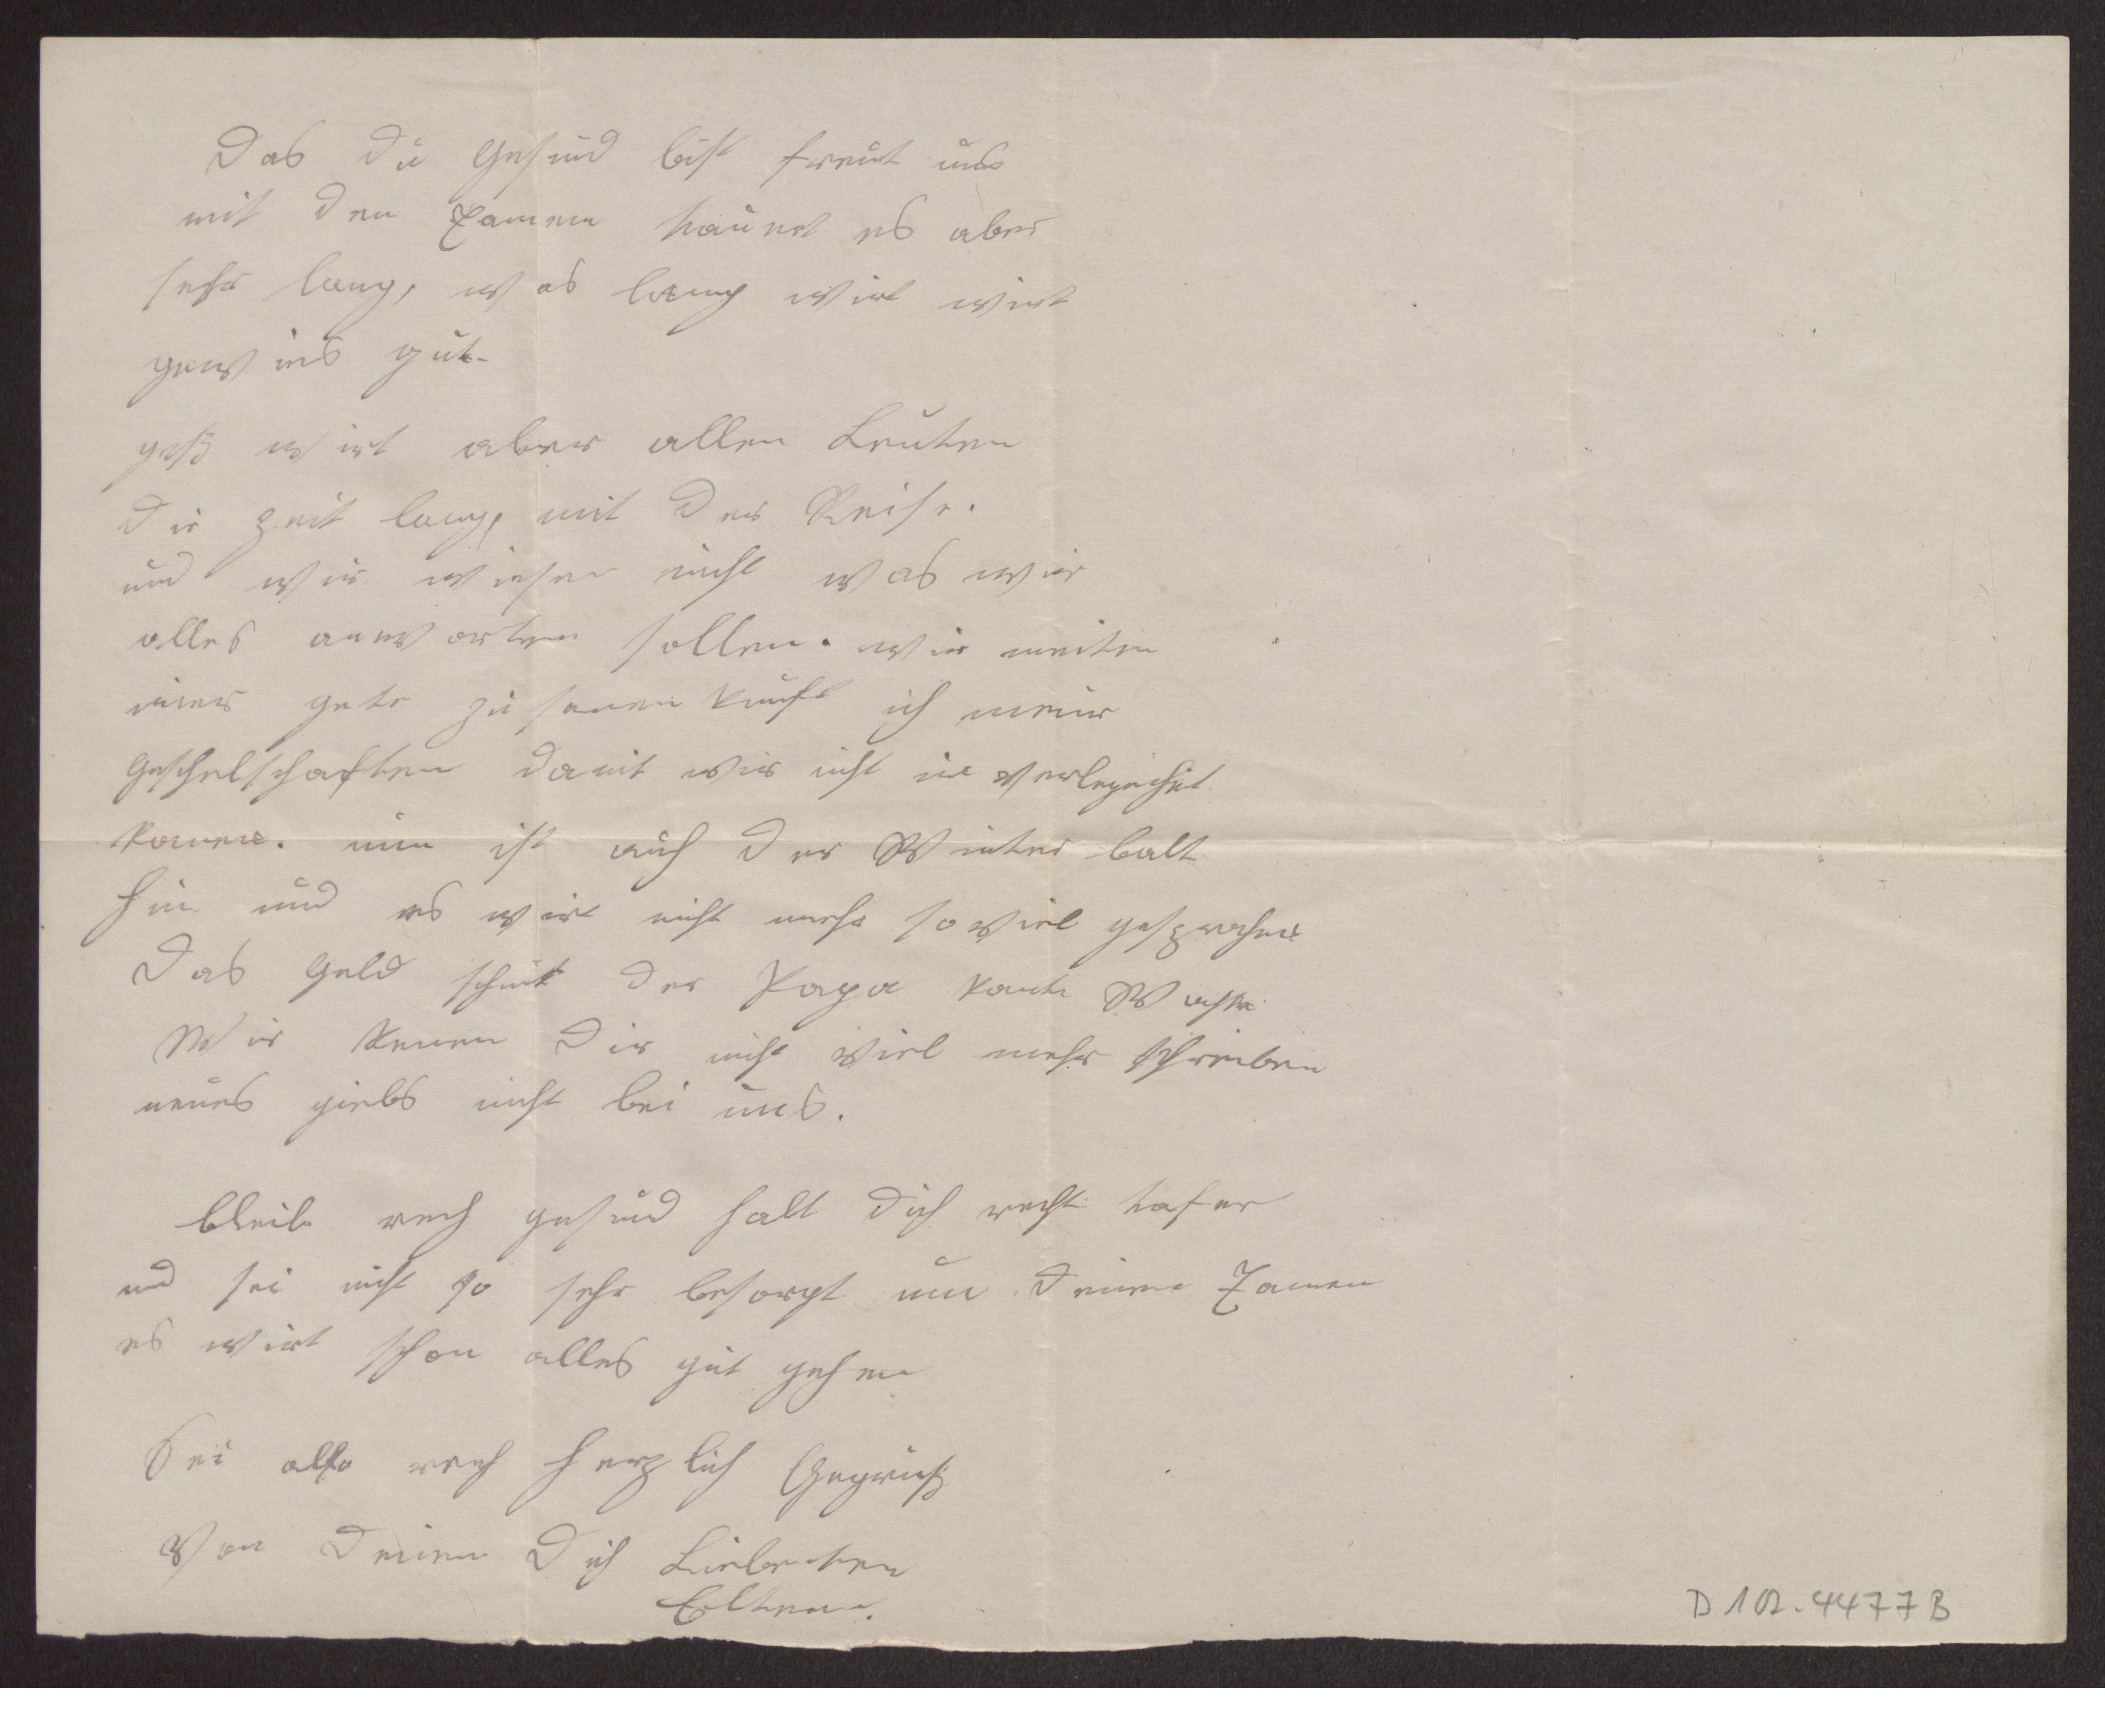 Das du Gesund bist freut uns
mit den Examen tauert es aber
sehr lang, was lang wirt wirt
gewies gut.
jeß wirt aber allen Leuten
die zeit lang, mit der Reise.
und wir wiesen nicht was wir
alles anworten sollen. wir meiten
imer jete zusamenkunft ich meine
Geschelschaften damit wir nicht in verlegehit
komen. nun ist auch der Winter balt
hin und es wirt nicht mehr soviel gesprochen
Das Geld schickt der Papa Woche
Wir kenen dir nicht viel mehr schreiben
neues giebs nicht bei uns.
bleib rech gesund halt dich recht tafer
und sei nicht so sehr besorgt um deine Examen
es wirt schon alles gut gehen
Sei also rech herzlich Gegrüßt
Von deinen Dich Liebenten
Eltern.
D 102.4477B